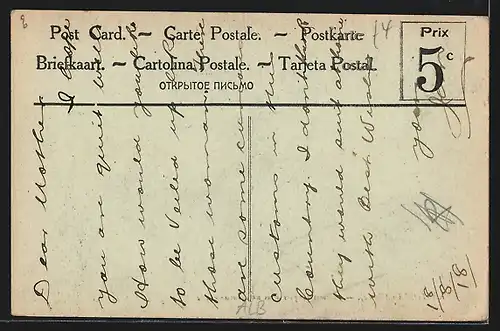 Post Card. – Carte Postale. – Postkarte
Briefkaart. – Cartolina Postale. – Tarjeta Postal.
ОТКРЫТОЕ ПИСЬМО
Prix
5 c
14
Dear Mother I hope
you are quiet well
How would you like
to be Veiled up like
these woman there
are some curious
customs in this
Country. I don't think
they would suit at home
with Best Wishes
your
13/3/18
ALB